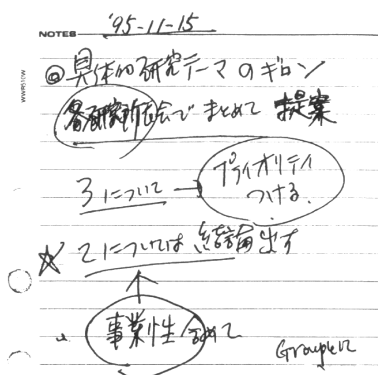 NOTES '95-11-15
◎具体的研究テーマのギロン
各研究所会でまとめて提案
3について → プライオリティ
つける.
☆2については結論出す
↑
事業性含めて
Groupに